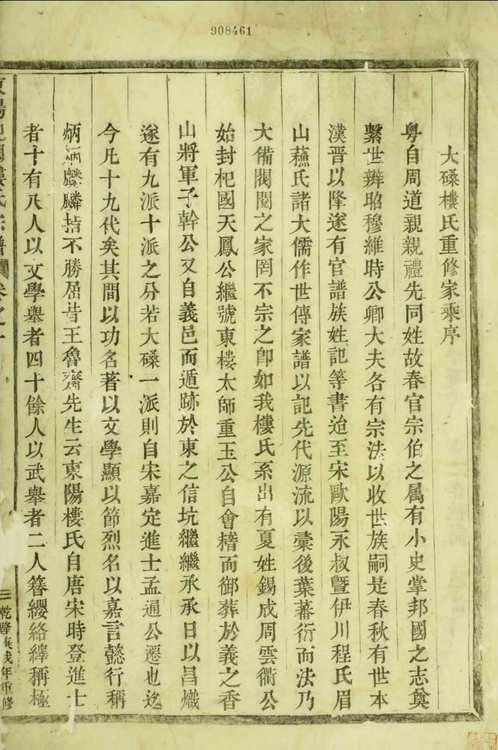 908461
大磉樓氏重修家乘序
粤自周道親親禮先同姓故春官宗伯之属有小史掌邦國之志奠
繫世辨昭穆維時公卿大夫各有宗法以收世族嗣是春秋有世本
漢晉以降遂有官譜族姓記等書迨至宋歐陽永叔暨伊川程氏眉
山蘇氏諸大儒作世傳家譜以記先代源流以彚後葉蕃衍而法乃
大備閥閱之家罔不宗之卽如我樓氏系出有夏姓錫成周雲衢公
始封杞國天鳳公繼號東樓太師重玉公自會稽而御葬於義之香
山將軍子幹公又自義邑而遁跡於東之信坑繼繼承承日以昌熾
遂有九派十派之分若大磉一派則自宋嘉定進士孟通公遷也迄
今凡十九代矣其間以功名著以文學顯以節烈名以嘉言懿行稱
炳炳麟麟指不勝屈昔王魯齋先生云東陽樓氏自唐宋時登進士
者十有八人以文學舉者四十餘人以武舉者二人簪纓絡繹稱極
樓氏宗譜 卷之
三 乾隆庚戌年重修